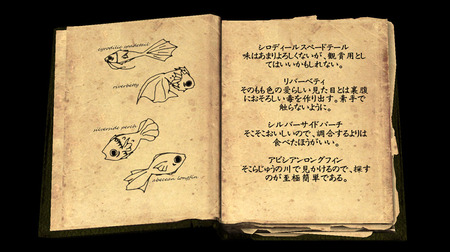 cyrodilic spadetail
riverbetty
silverside perch
abecean longfin
シロディールスペードテール
味はあまりよろしくないが、観賞用とし
てはいいかもしれない。
リバーベティ
そのもも色の愛らしい見た目とは裏腹
におそろしい毒を作り出す。素手で
触らないように。
シルバーサイドパーチ
そこそこおいしいので、調合するよりは
食べたほうがいい。
アビシアンロングフィン
そこらじゅうの川で見かけるので、探す
のが至極簡単である。